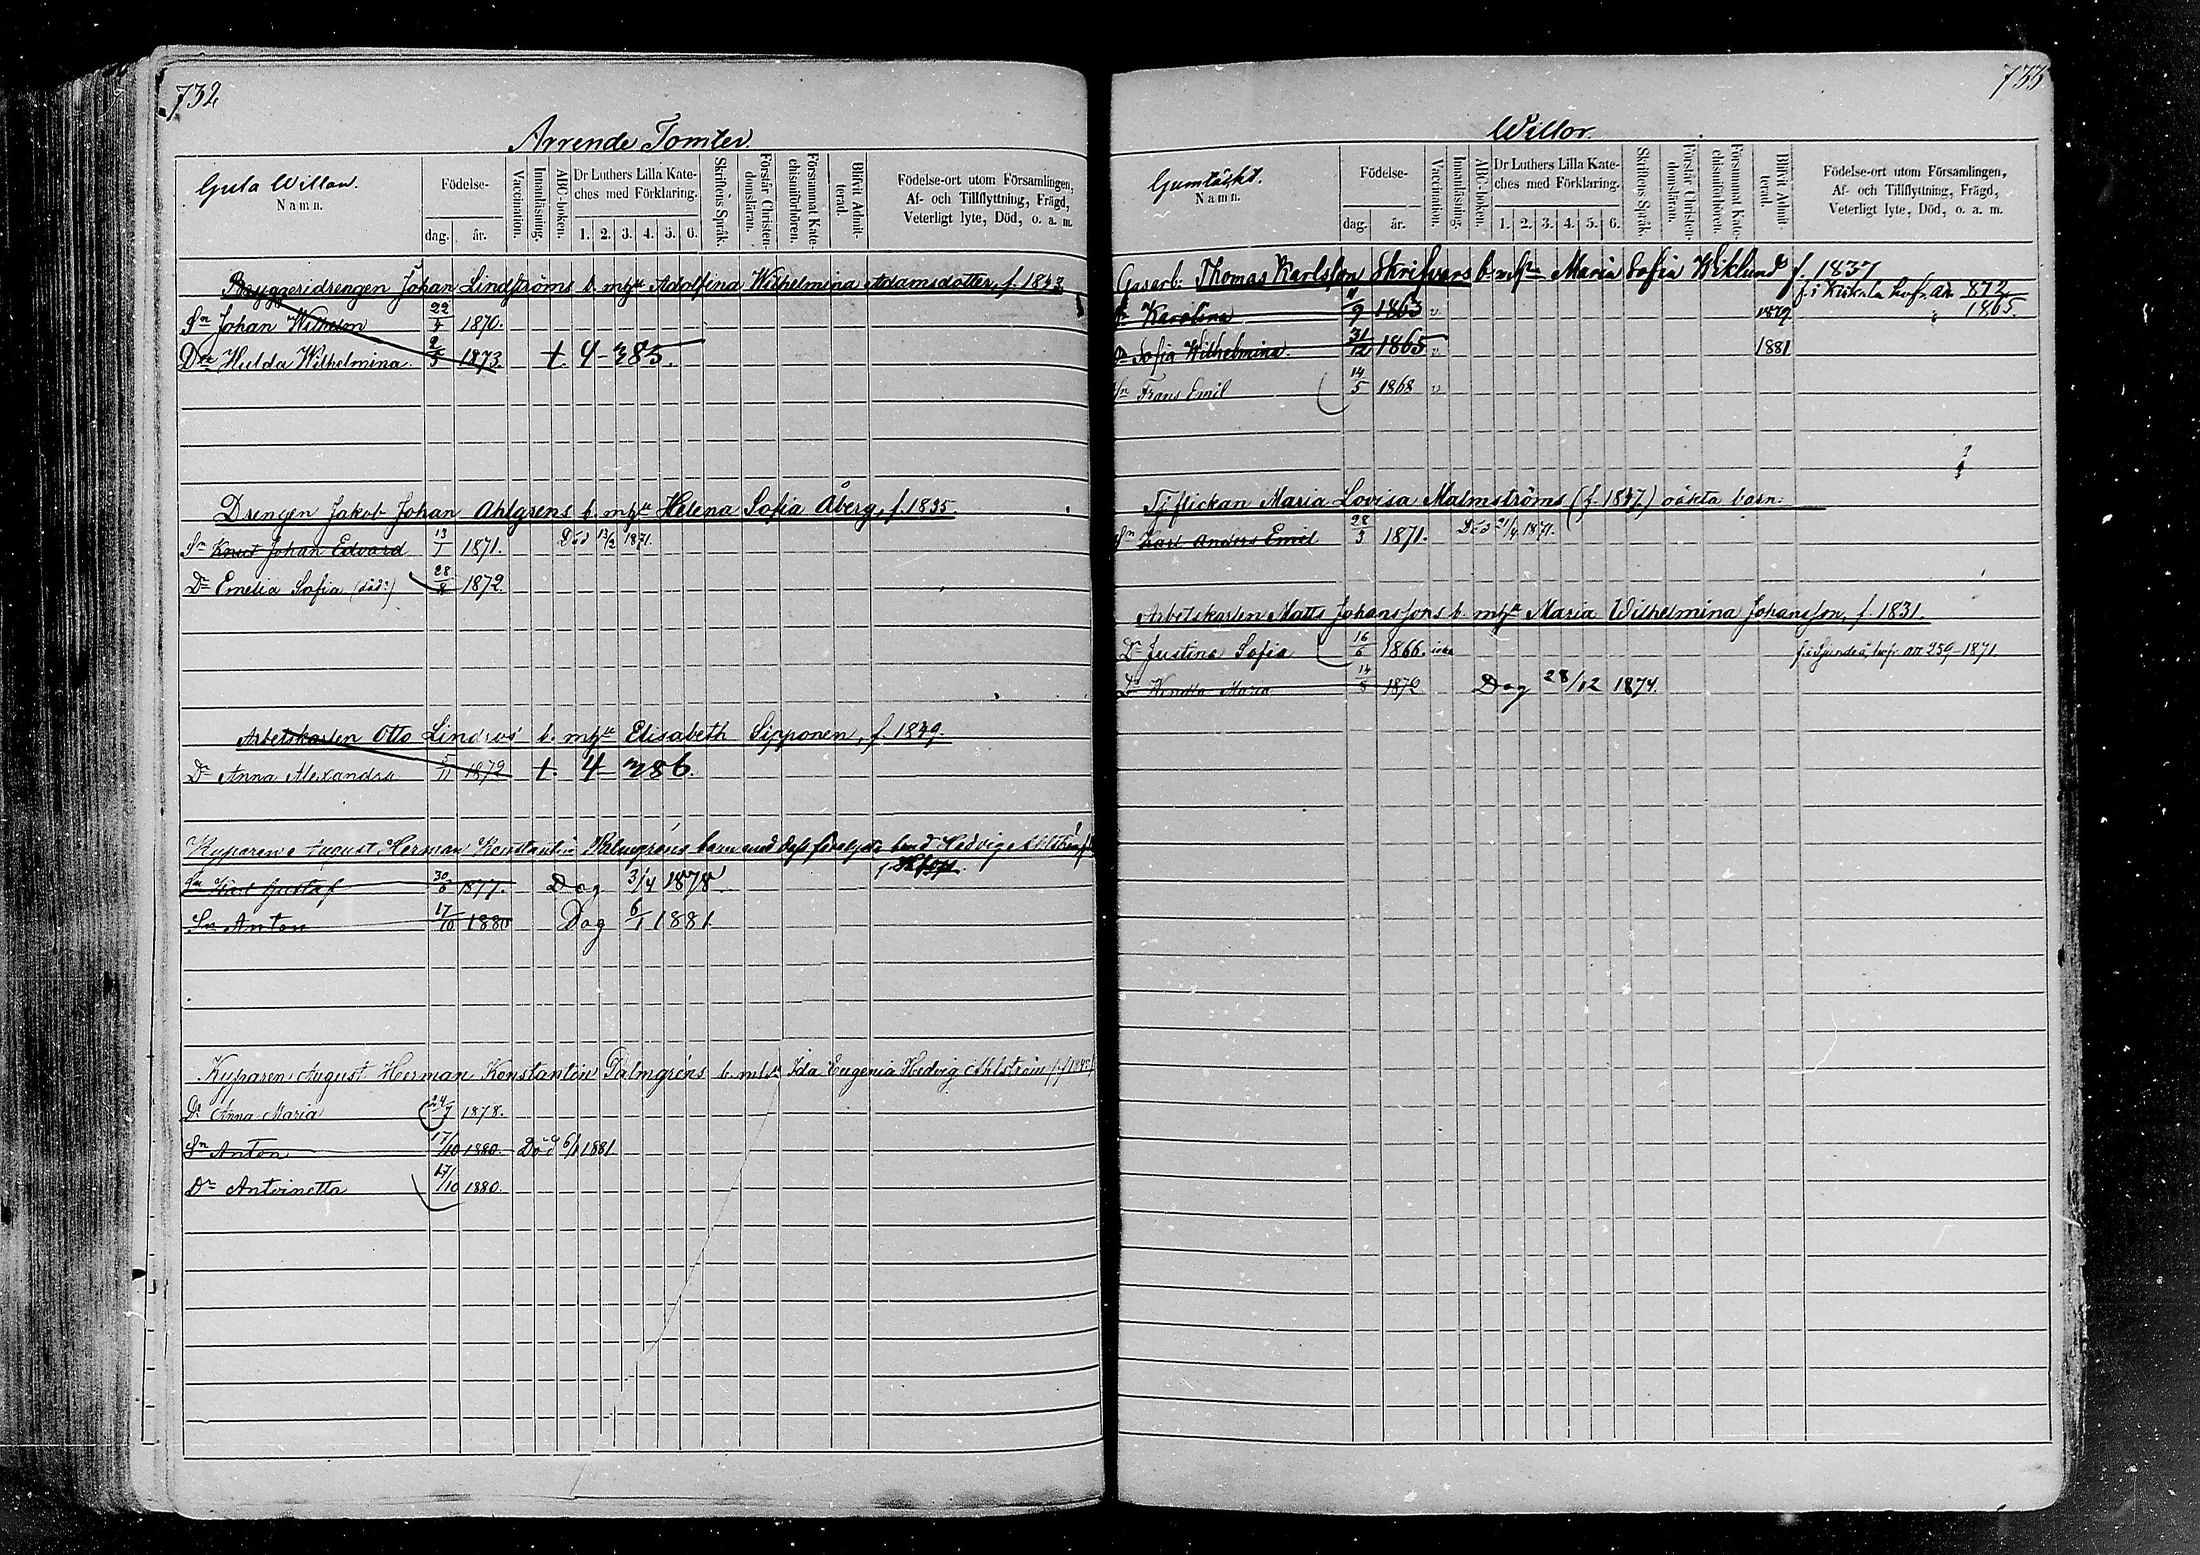 732
Arrende Tomter.
Gula Willan.
Namn.
Födelse-
dag. år.
Vaccination.
Innanläsning.
ABC-boken.
Dr Luthers Lilla Kate-
ches med Förklaring.
1. 2. 3. 4. 5. 6.
Skriftens Språk.
Förstår Christen-
domsläran.
Försummat Kate-
chismiförhören.
Blifvit Admit-
terad.
Födelse-ort utom Församlingen,
Af- och Tillflyttning, Frägd,
Veterligt lyte, Död, o. a. m.
Bryggeridrengen Johan Lindströms b. m. hu Adolfina Wilhelmina Adamsdotter, f. 1843
Sn Johan Wilhelm 22/4 1870.
Dr Hulda Wilhelmina. 2/5 1873. t. 4-385.
Drengen Jakob Johan Ahlgrens b. m. hu Helena Sofia Åberg, f. 1835.
Sn Knut Johan Edvard 13/1 1871. Död 13/2 1871.
Dr Emelia Sofia (död:) 28/8 1872.
Arbetskarlen Otto Lindros' b. m. hu Elisabeth Sipponen, f. 1849.
Dr Anna Alexandra 5/11 1872 t. 4-386.
Kyparen August Herman Konstantin Palmgréns barn med Hedvig Ahlström
Sn Karl Gustaf 30/6 1877. Dog 3/4 1878.
Sn Anton 17/10 1880 Dog 6/1 1881
Kyparen August Herman Konstantin Palmgréns b. m. hu Ida Eugenia Hedvig Ahlström
Dr Anna Maria 24/7 1878.
Sn Anton 17/10 1880. Död 6/1 1881
Dr Antoinetta 17/10 1880.
733
Willor.
Gumtäckt.
Namn.
Födelse-
dag. år.
Vaccination.
Innanläsning.
ABC-boken.
Dr Luthers Lilla Kate-
ches med Förklaring.
1. 2. 3. 4. 5. 6.
Skriftens Språk.
Förstår Christen-
domsläran.
Försummat Kate-
chismiförhören.
Blifvit Admit-
terad.
Födelse-ort utom Församlingen,
Af- och Tillflyttning, Frägd,
Veterligt lyte, Död, o. a. m.
Gasarb. Thomas Karlsson Skrifvars b. m. hu Maria Sofia Wiklund f. 1837
Dr Karolina 9 1863 v. 1879 f. i 872 1865.
Dr Sofia Wilhelmina. 31/12 1865 v. 1881
Sn Frans Emil 14/5 1868 v.
Tj.flickan Maria Lovisa Malmströms (f. 1847) oäkta barn:
Sn Karl Anders Emil 28/3 1871. Död 21/4 1871.
Arbetskarlen Matts Johanssons b. m. hu Maria Wilhelmina Johansson, f. 1831.
Dr Justina Sofia 16/6 1866. f. i Sjundeå, bef. an 259 1871.
Dr Maria 14/8 1872 Dog 28/12 1874.